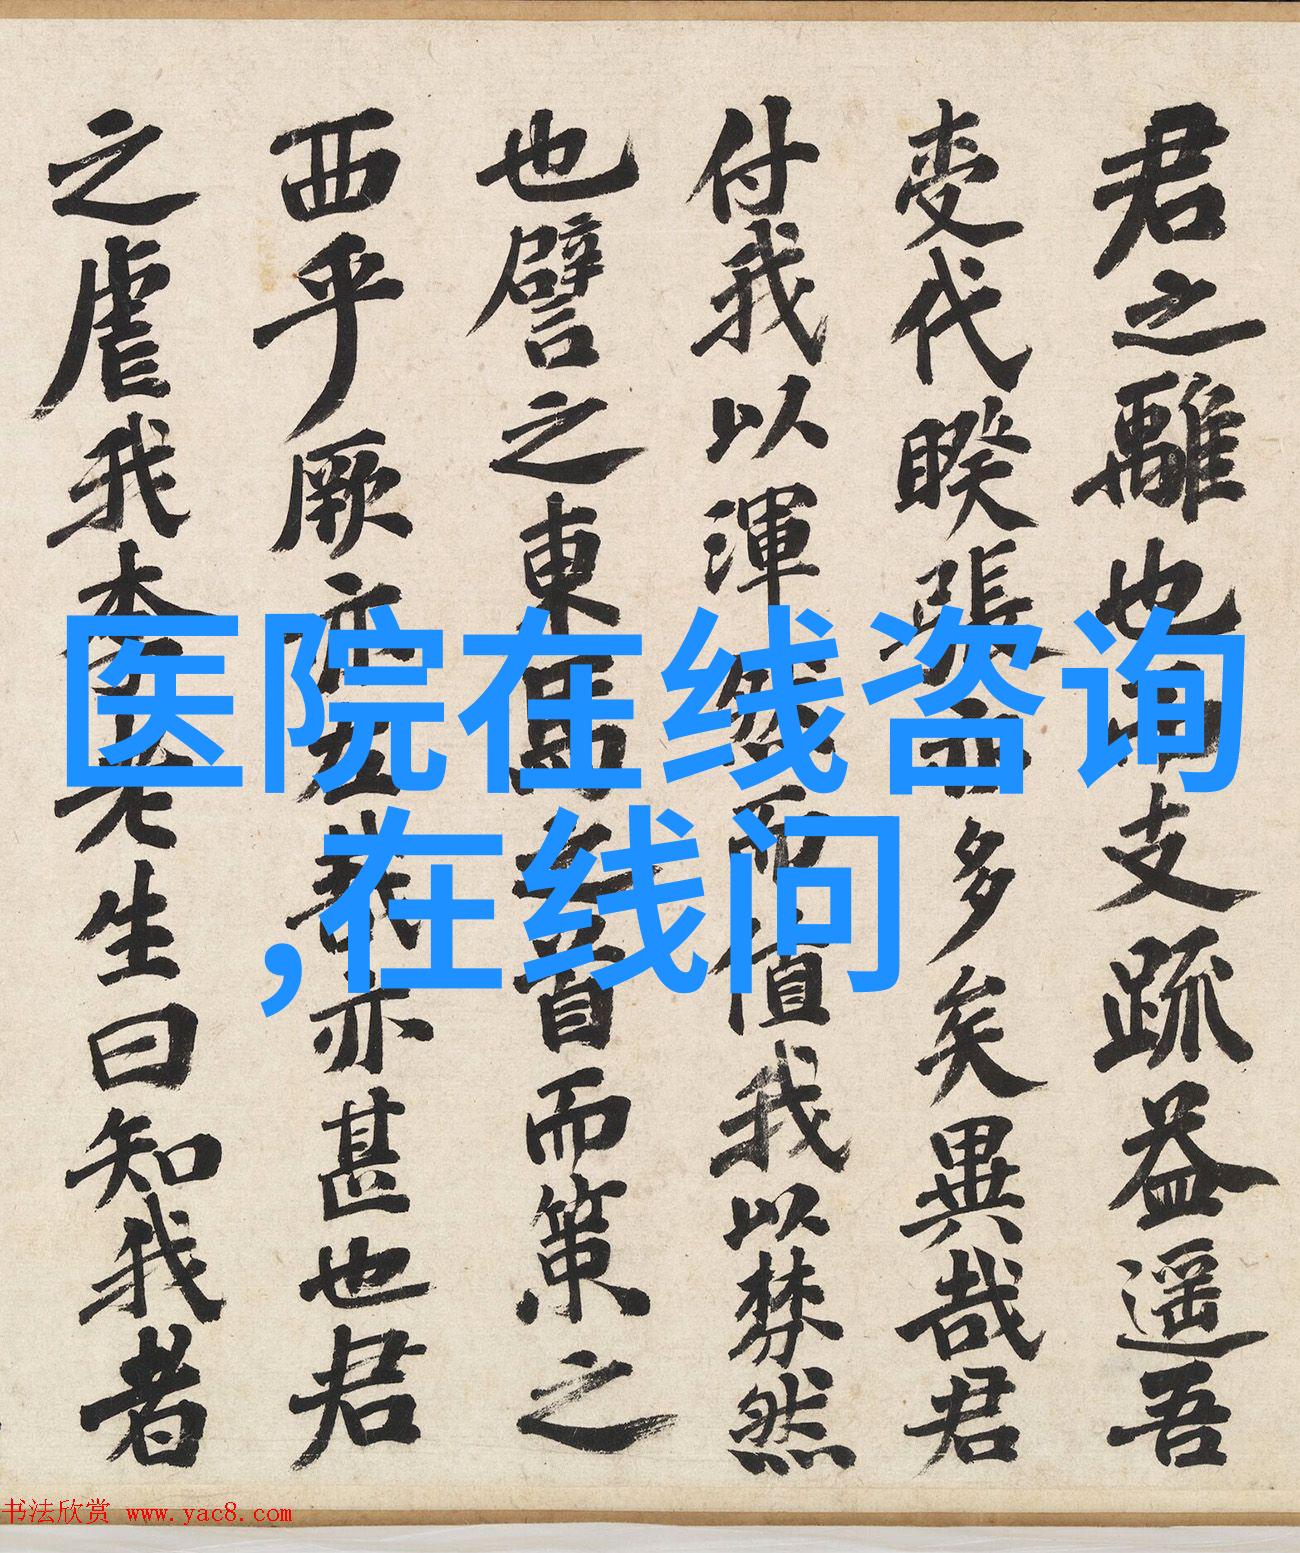 君之離也市支疏益遥吾
变代睽張亦多矣異哉君
付我以渾然而值我以棼然
也譬之東馬之首而策之
西乎厥亦左哉亦甚也君
之虐我李老生曰知我者
医院在线咨询
,在线问
书法欣赏 www.yac8.com